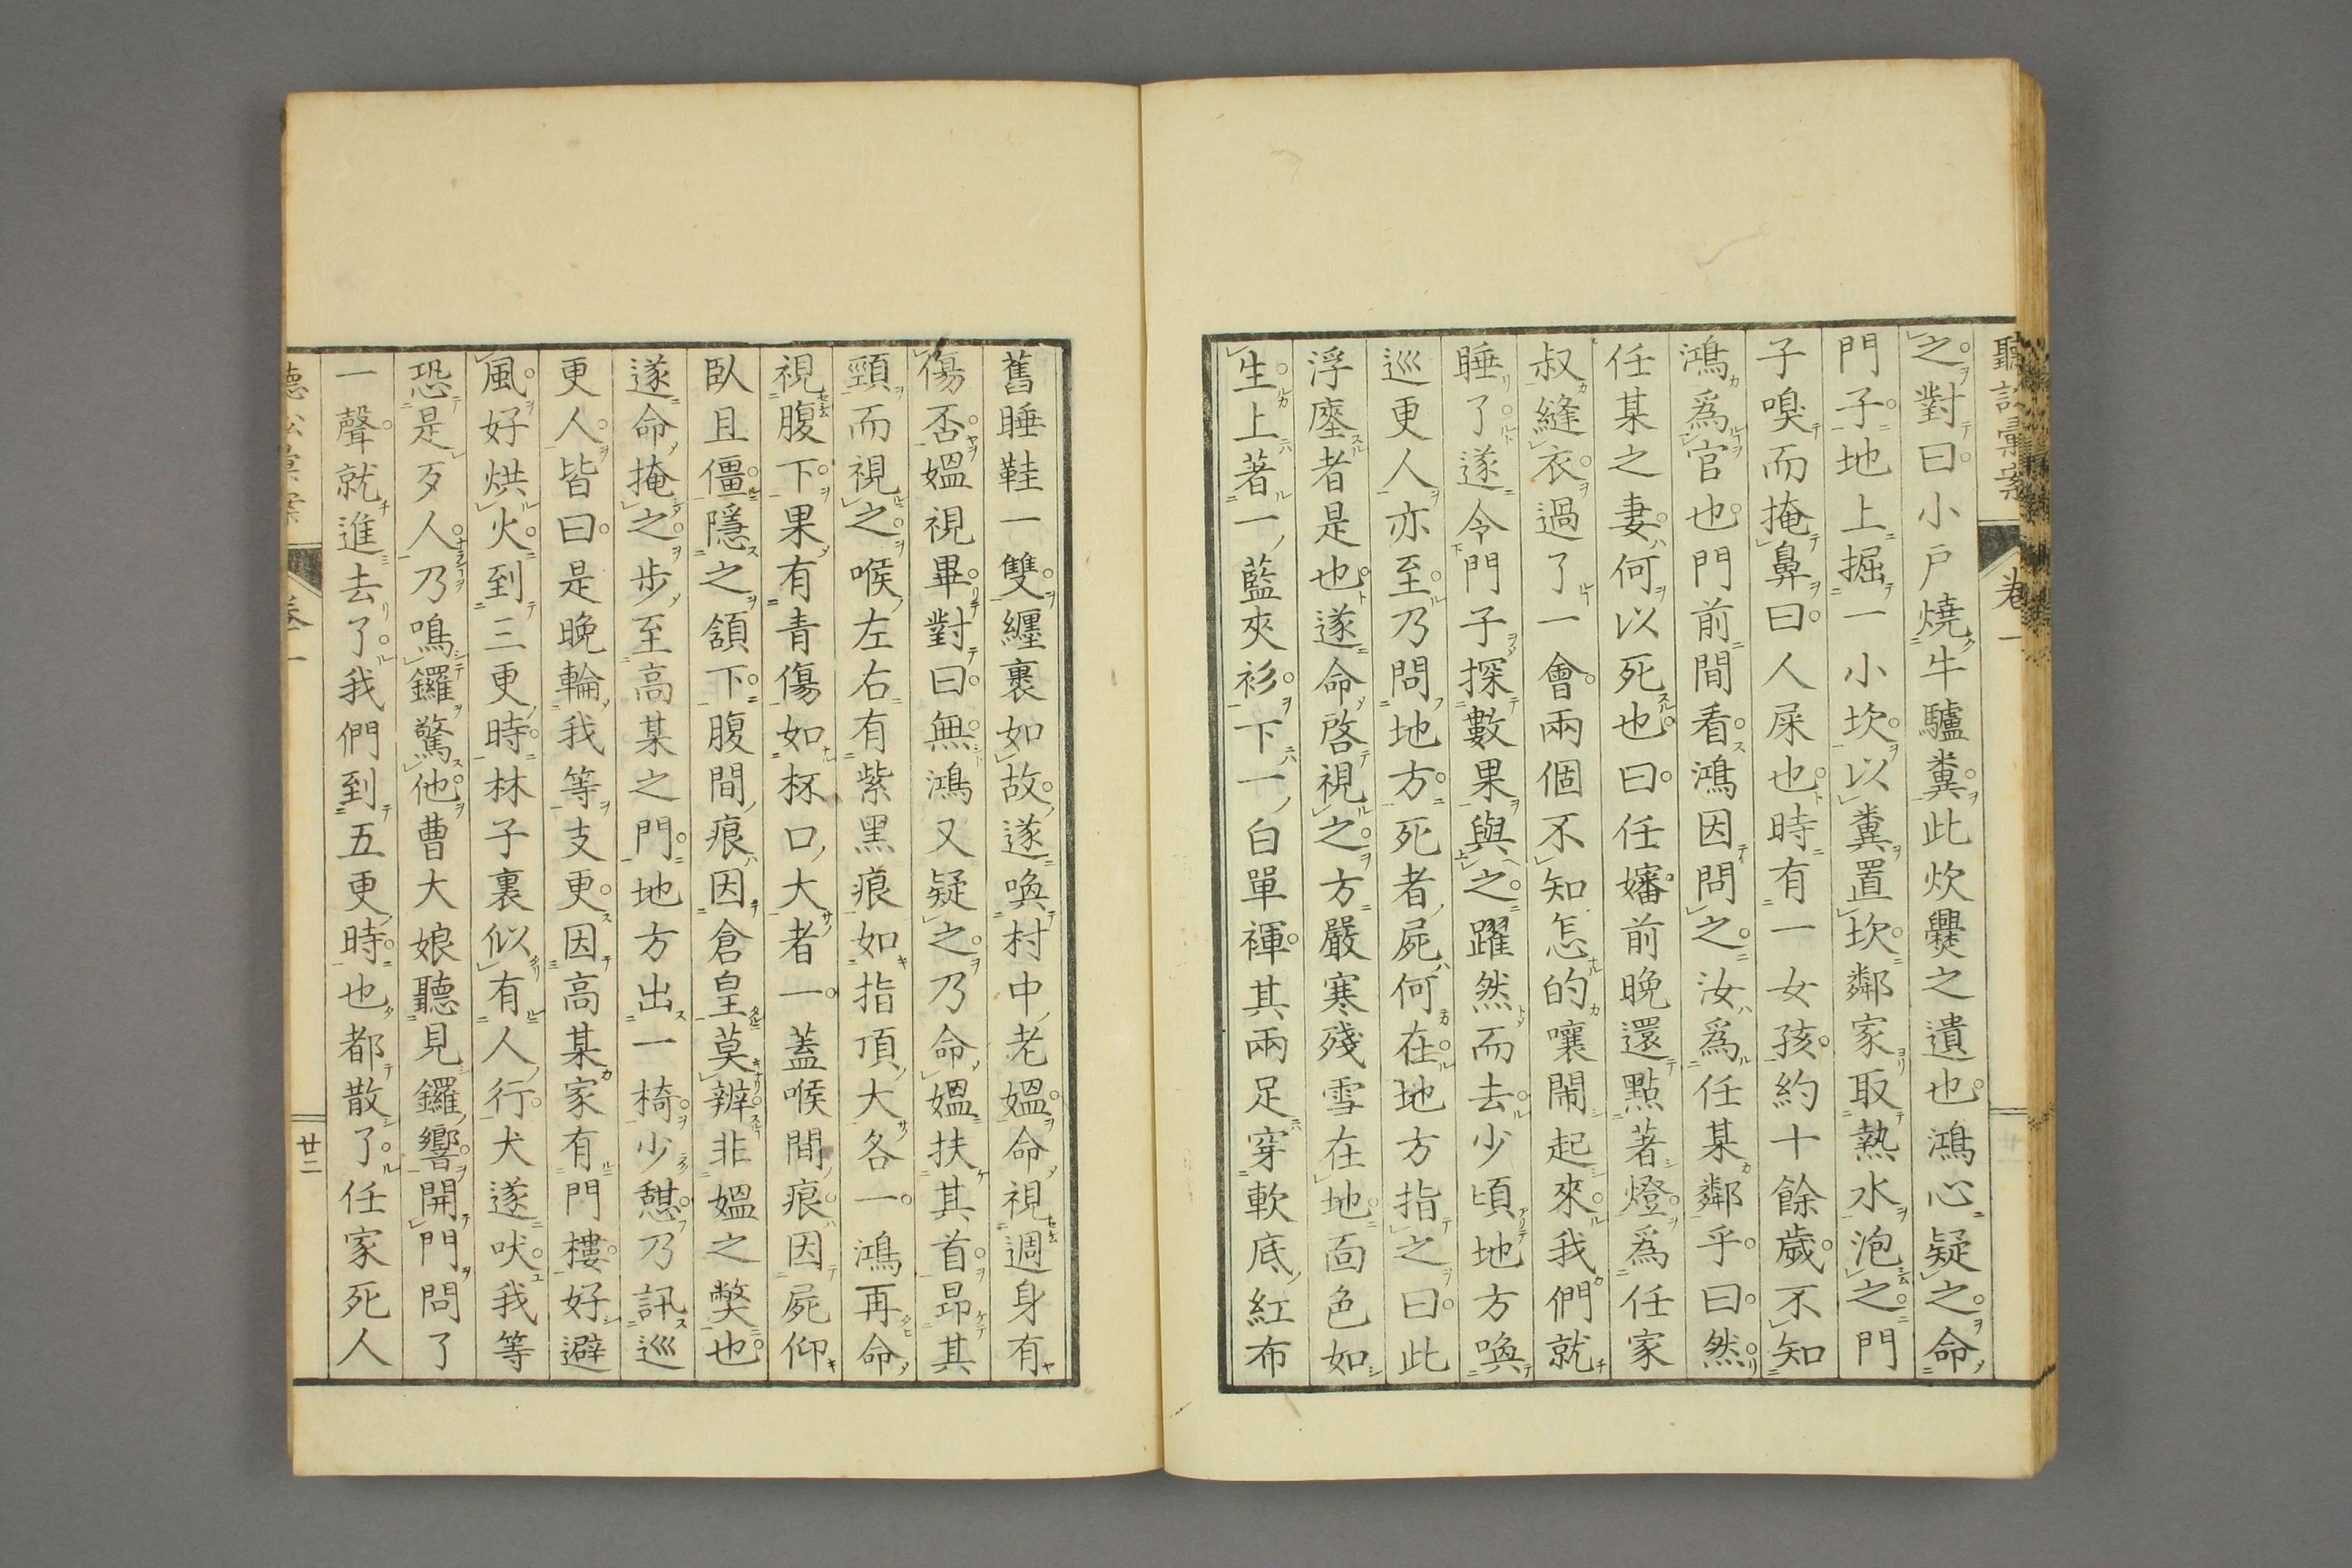 聽訟彙案
卷一
之對曰小戶燒牛驢糞此炊爨之遺也鴻心疑之命
門子地上掘一小坎以糞置坎鄰家取熱水泡之門
子嗅而掩鼻曰人屎也時有一女孩約十餘歲不知
鴻爲官也門前間看鴻因問之汝爲任某鄰乎曰然
任某之妻何以死也曰任嬸前晚還點著燈爲任家
叔縫衣過了一會兩個不知怎的嚷鬧起來我們就
睡了遂令門子探數果與之躍然而去少頃地方喚
巡更人亦至乃問地方死者屍何在地方指之曰此
浮塟者是也遂命啓視之方嚴寒殘雪在地面色如
生上著一藍夾衫下一白單褌其兩足穿軟底紅布
舊睡鞋一雙纏裹如故遂喚村中老媼命視週身有
傷否媼視畢對曰無鴻又疑之乃命媼扶其首昂其
頸而視之喉左右有紫黑痕如指頂大各一鴻再命
視腹下果有青傷如杯口大者一蓋喉間痕因屍仰
臥且僵隱之頷下腹間痕因倉皇莫辨非媼之弊也
遂命掩之步至高某之門地方出一椅少憇乃訊巡
更人皆曰是晚輪我等支更因高某家有門樓好避
風好烘火到三更時林子裏似有人行犬遂吠我等
恐是歹人乃鳴鑼驚他曹大娘聽見鑼響開門問了
一聲就進去了我們到五更時也都散了任家死人
聽訟彙案
卷一
廿二